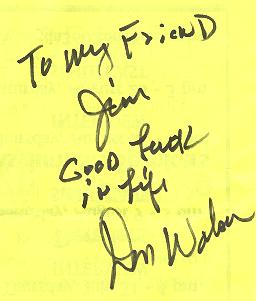 To my FrienD
Jim
GOOD luck
in life